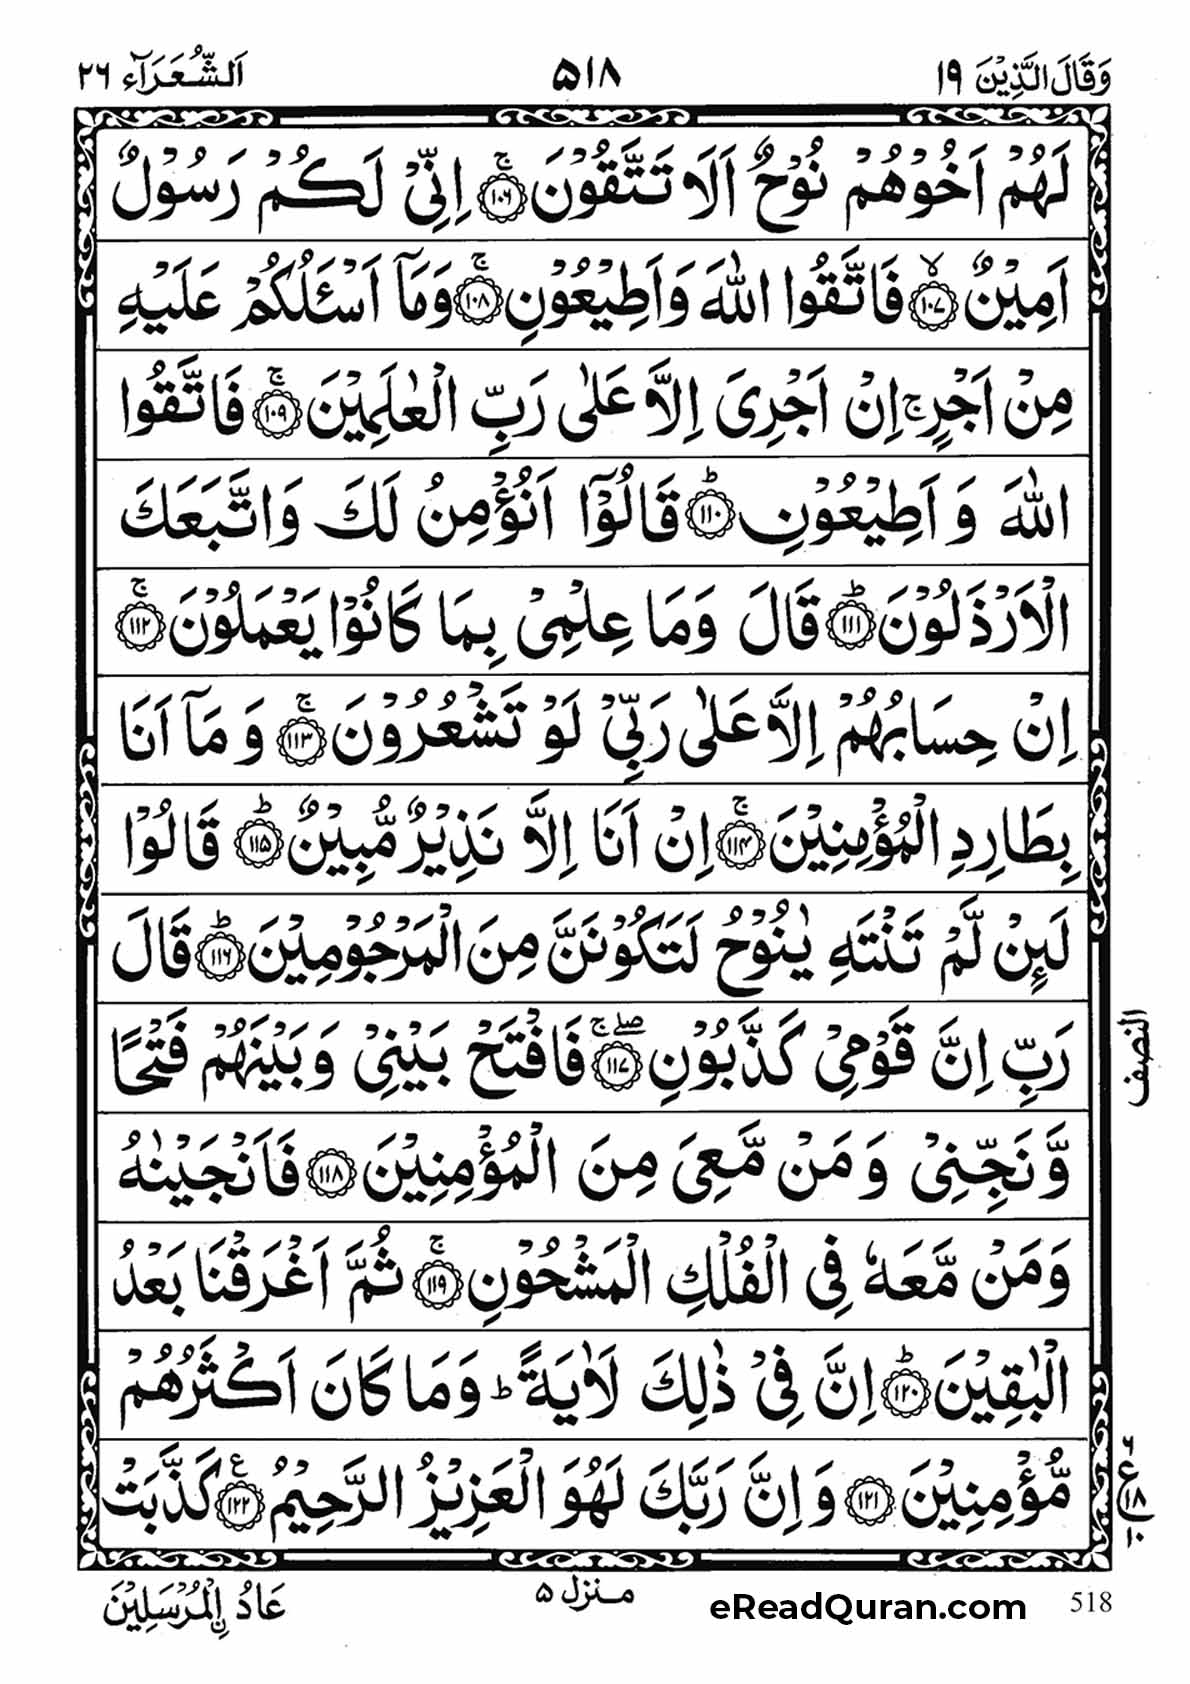 وَقَالَ الَّذِيْنَ ١٩ ٥١٨ اَلشُّعَرَآء ٢٦
لَهُمْ اَخُوْهُمْ نُوْحٌ اَلَا تَتَّقُوْنَ ۚ‏﴿۱۰۶﴾ اِنِّىْ لَكُمْ رَسُوْلٌ
اَمِيْنٌ ۙ‏﴿۱۰۷﴾ فَاتَّقُوا اللّٰهَ وَاَطِيْعُوْنِ‌ ۚ‏﴿۱۰۸﴾ وَمَاۤ اَسْـَٔـلُكُمْ عَلَيْهِ
مِنْ اَجْرٍ‌ۚ اِنْ اَجْرِىَ اِلَّا عَلٰى رَبِّ الْعٰلَمِيْنَ‌ ۚ‏﴿۱۰۹﴾ فَاتَّقُوا
اللّٰهَ وَ اَطِيْعُوْنِ ؕ‏﴿۱۱۰﴾ قَالُوْۤا اَنُؤْمِنُ لَكَ وَاتَّبَعَكَ
الْاَرْذَلُوْنَ ؕ‏﴿۱۱۱﴾ قَالَ وَمَا عِلْمِىْ بِمَا كَانُوْا يَعْمَلُوْنَ‌ۚ‏﴿۱۱۲﴾
اِنْ حِسَابُهُمْ اِلَّا عَلٰى رَبِّىْ‌ لَوْ تَشْعُرُوْنَ‌ۚ‏﴿۱۱۳﴾ وَ مَاۤ اَنَا
بِطَارِدِ الْمُؤْمِنِيْنَ‌ۚ‏﴿۱۱۴﴾ اِنْ اَنَا اِلَّا نَذِيْرٌ مُّبِيْنٌؕ‏﴿۱۱۵﴾ قَالُوْا
لَٮِٕنْ لَّمْ تَنْتَهِ يٰـنُوْحُ لَـتَكُوْنَنَّ مِنَ الْمَرْجُوْمِيْنَؕ‏﴿۱۱۶﴾ قَالَ
رَبِّ اِنَّ قَوْمِىْ كَذَّبُوْنِ‌ ۖ‌ۚ‏﴿۱۱۷﴾ فَافْتَحْ بَيْنِىْ وَبَيْنَهُمْ فَتْحًا
وَّنَجِّنِىْ وَمَنْ مَّعِىَ مِنَ الْمُؤْمِنِيْنَ‏﴿۱۱۸﴾ فَاَنْجَيْنٰهُ
وَمَنْ مَّعَهٗ فِى الْـفُلْكِ الْمَشْحُوْنِ‌ۚ‏﴿۱۱۹﴾ ثُمَّ اَغْرَقْنَا بَعْدُ
الْبٰقِيْنَؕ‏﴿۱۲۰﴾ اِنَّ فِىْ ذٰلِكَ لَاٰيَةً‌ ؕ وَمَا كَانَ اَكْثَرُهُمْ
مُّؤْمِنِيْنَ‏﴿۱۲۱﴾ وَاِنَّ رَبَّكَ لَهُوَ الْعَزِيْزُ الرَّحِيْمُ‏﴿۱۲۲﴾ۚ ع كَذَّبَتْ
النصف
٦
ع
١٨
١٠
518 eReadQuran.com منزل ۵ عَادُ ۨالْمُرْسَلِيْنَ